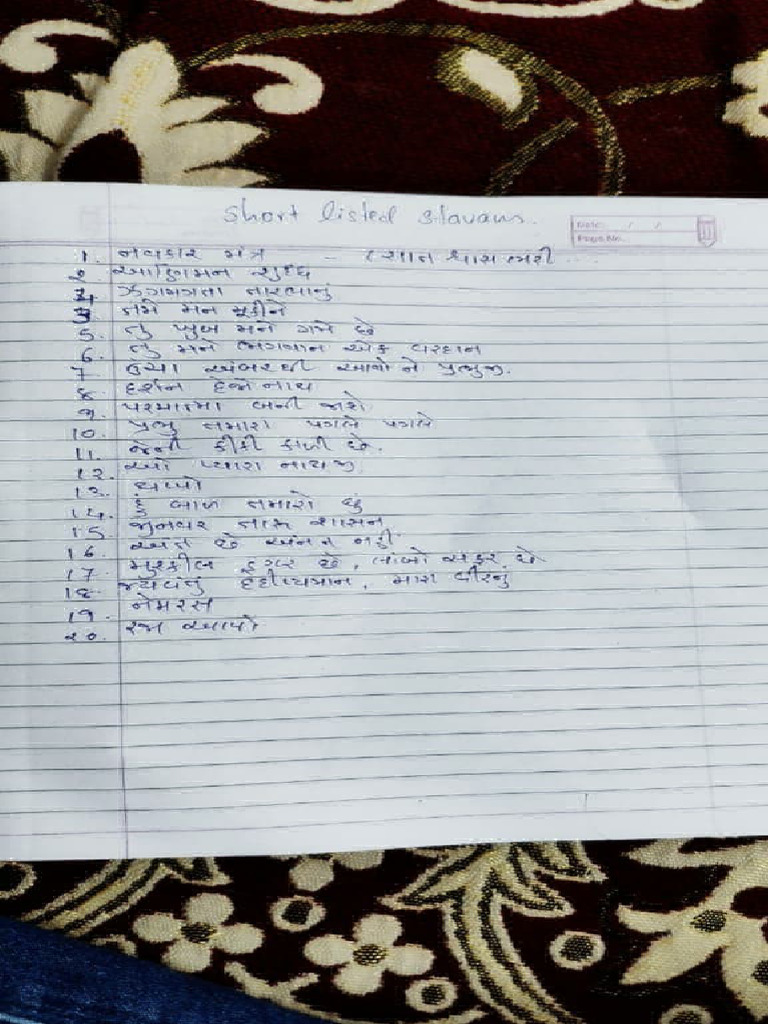 Short listed stavans.
Date: / /
Page No.
1. નવકાર મંત્ર -
2 શુદ્ધિ
3 ઝગમગતા તારલાનું
4 તમે મન મૂકીને
5. તું ખુબ મને ગમે છે
6. તું મને ભગવાન એક વરદાન
7 ઉંચા અંબરથી આવો ને પ્રભુજી.
8 દર્શન દેજો નાથ
9. પરમાત્મા બની જાશે
10. પ્રભુ તમારા પગલે પગલે
11. જેની કીકી કાળી છે.
12. ઓ પ્યારા નાથજી
13. થપ્પો
14. હું બાળ તમારો છું
15 જીનવર તારૂ શાસન
16 અંત છે અનંત નહીં
17 મુશ્કીલ ડગર છે, લાંબો સફર છે
18 મારા વીરનું
19. નેમરસ
20. રજા આપો